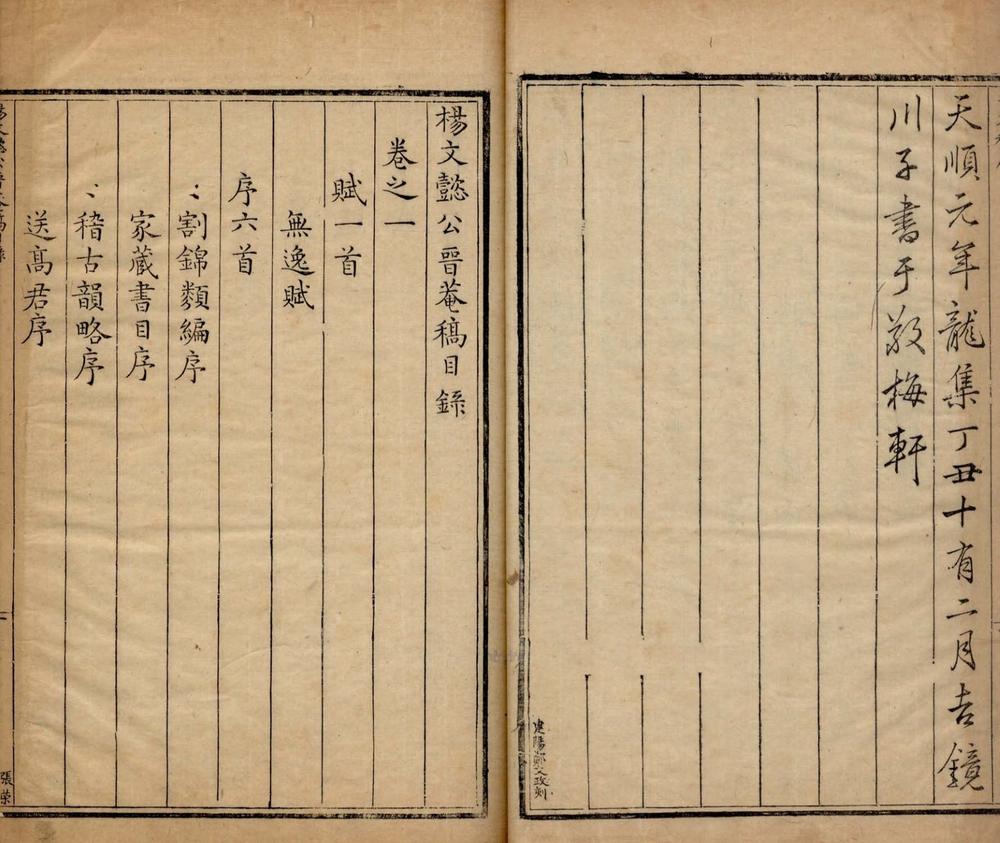 天順元年龍集丁丑十有二月吉鏡
川子書于敬梅軒
建陽鄭文政刻
楊文懿公晉菴稿目錄
卷之一
賦一首
無逸賦
序六首
割錦類編序
家藏書目序
稽古韻略序
送高君序
張荣